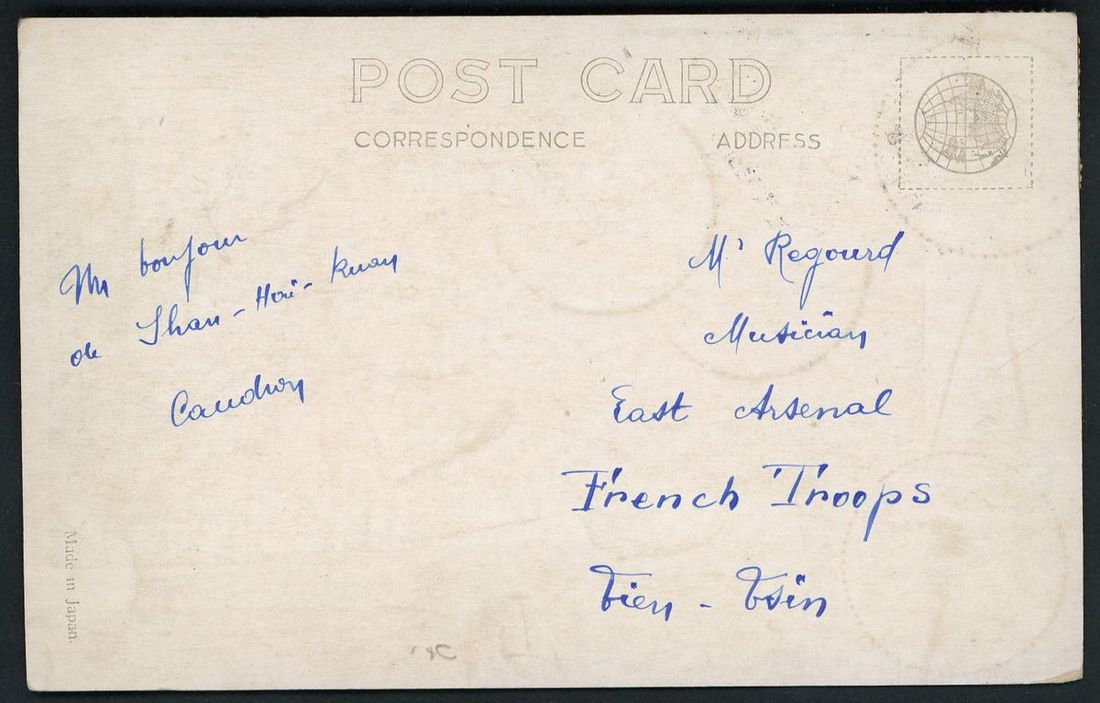 POST CARD
CORRESPONDENCE
ADDRESS
Un bonjour
de Shan-Haï-Kuan
Caudron
Mr Regourd
Musician
East Arsenal
French Troops
Tien-Tsin
Made in Japan.